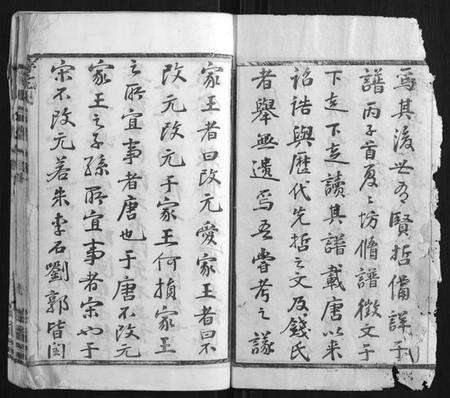 焉其後世有賢哲備詳于
譜丙子首夏之坊偹譜徵文于
下走下走讀其譜載唐以來
詔誥與歷代先哲之文及錢氏
者舉無遺焉吾嘗考之謙
家王者曰改元愛家王者曰不
改元改元于家王何損家王
之所宜事者唐也于唐不改元
家王之子孫所宜事者宋也于
宋不改元若朱李石劉郭皆閏